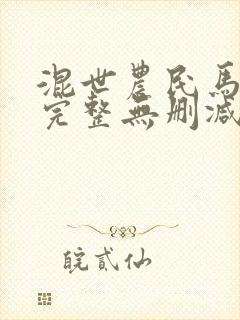 混世農民馬
完整無刪減
皖貳仙